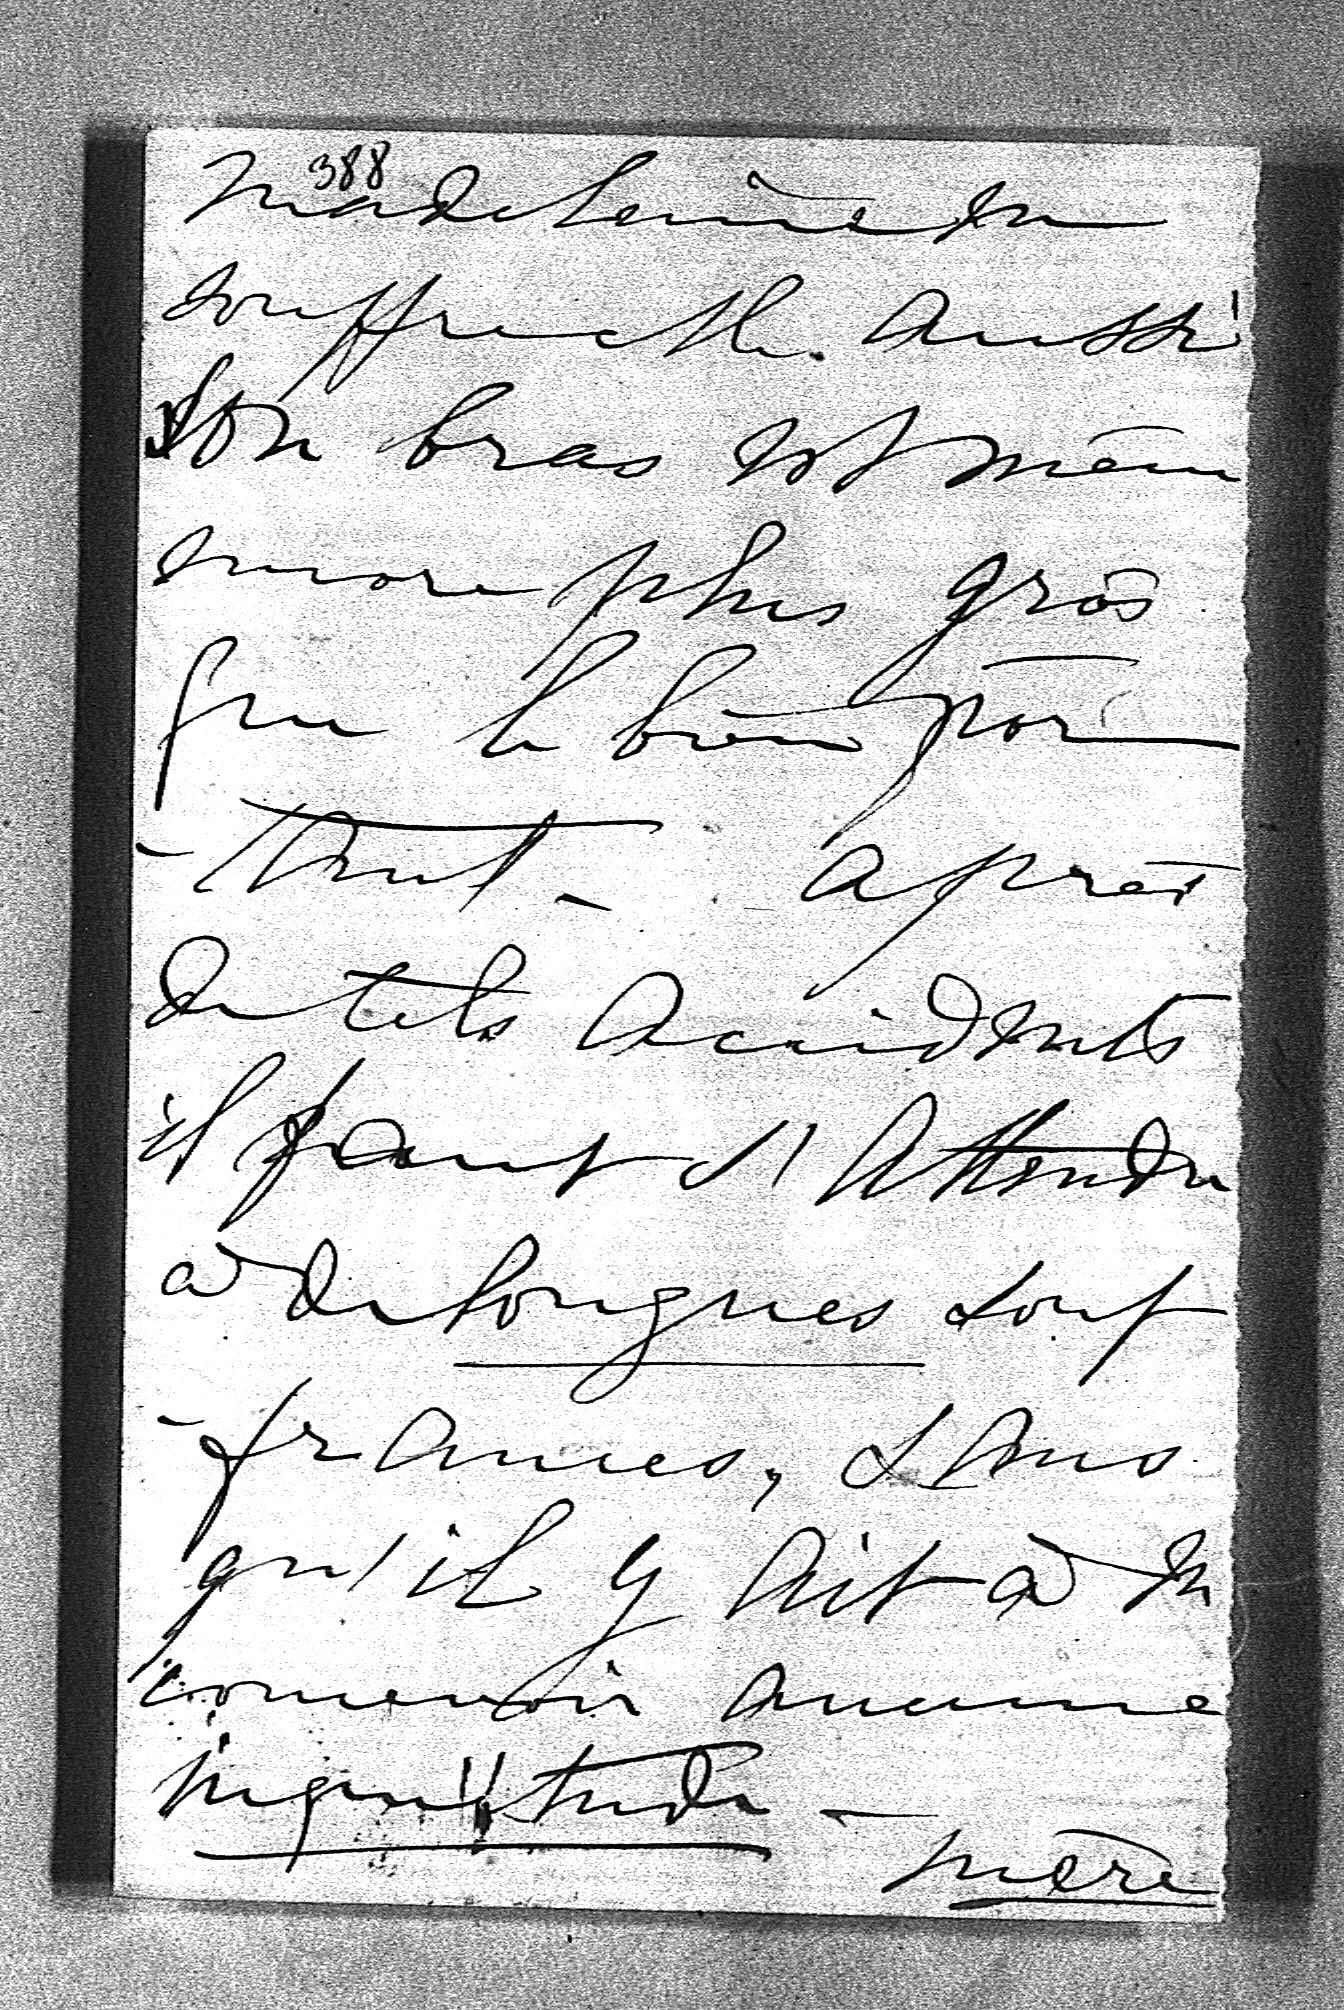 388
Madeleine en
souffre-t-elle. Aussi
son bras est même
encore plus gros
que le bien por
-tant - après
de tels accidents
il faut s'attendre
à de longues souf
-frances, sans
qu'il y ait à en
concevoir aucune
inquiétude -
mère